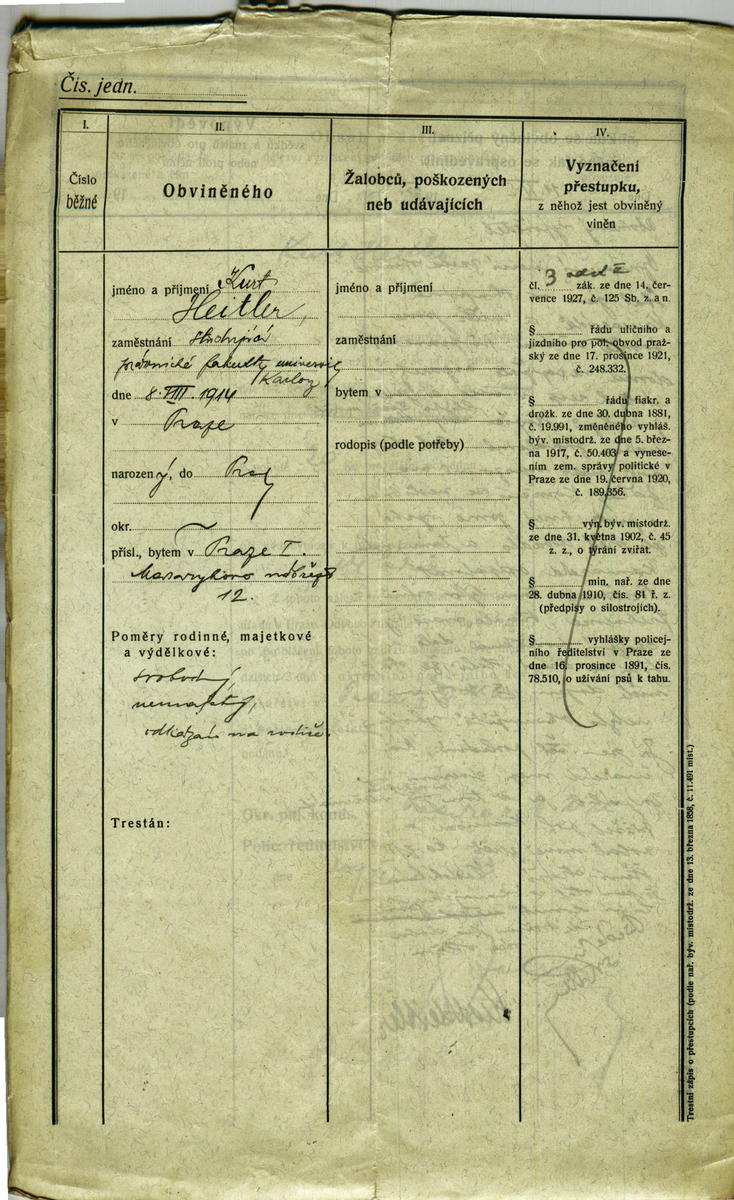 Čís. jedn.
I.
Číslo
běžné
II.
Obviněného
III.
Žalobců, poškozených
neb udávajících
IV.
Vyznačení
přestupku,
z něhož jest obviněný
viněn
jméno a příjmení Kurt
Heitler,
zaměstnání studující
právnické fakulty university
Karlovy
dne 8. VIII. 1914
v Praze
narozený, do Prahy
okr.
přísl., bytem v Praze I.
Masarykovo nábřeží
12.
Poměry rodinné, majetkové
a výdělkové:
svobodný,
nemajetný,
odkázán na rodiče.
Trestán:
jméno a příjmení
zaměstnání
bytem v
rodopis (podle potřeby)
čl. 3 zák. ze dne 14. čer-
vence 1927, č. 125 Sb. z. a n.
§ řádu uličního a
jízdního pro pol. obvod praž-
ský ze dne 17. prosince 1921,
č. 248.332.
§ řádu fiakr. a
drožk. ze dne 30. dubna 1881,
č. 19.991, změněného vyhláš.
býv. místodrž. ze dne 5. břez-
na 1917, č. 50.403 a vynese-
ním zem. správy politické v
Praze ze dne 19. června 1920,
č. 189.356.
§ výn. býv. místodrž.
ze dne 31. května 1902, č. 45
z. z., o týrání zvířat.
§ min. nař. ze dne
28. dubna 1910, čís. 81 ř. z.
(předpisy o silostrojích).
§ vyhlášky policej-
ního ředitelství v Praze ze
dne 16. prosince 1891, čís.
78.510, o užívání psů k tahu.
Trestní zápis o přestupcích (podle nař. býv. místodrž. ze dne 13. března 1858, č. 11.491 míst.)